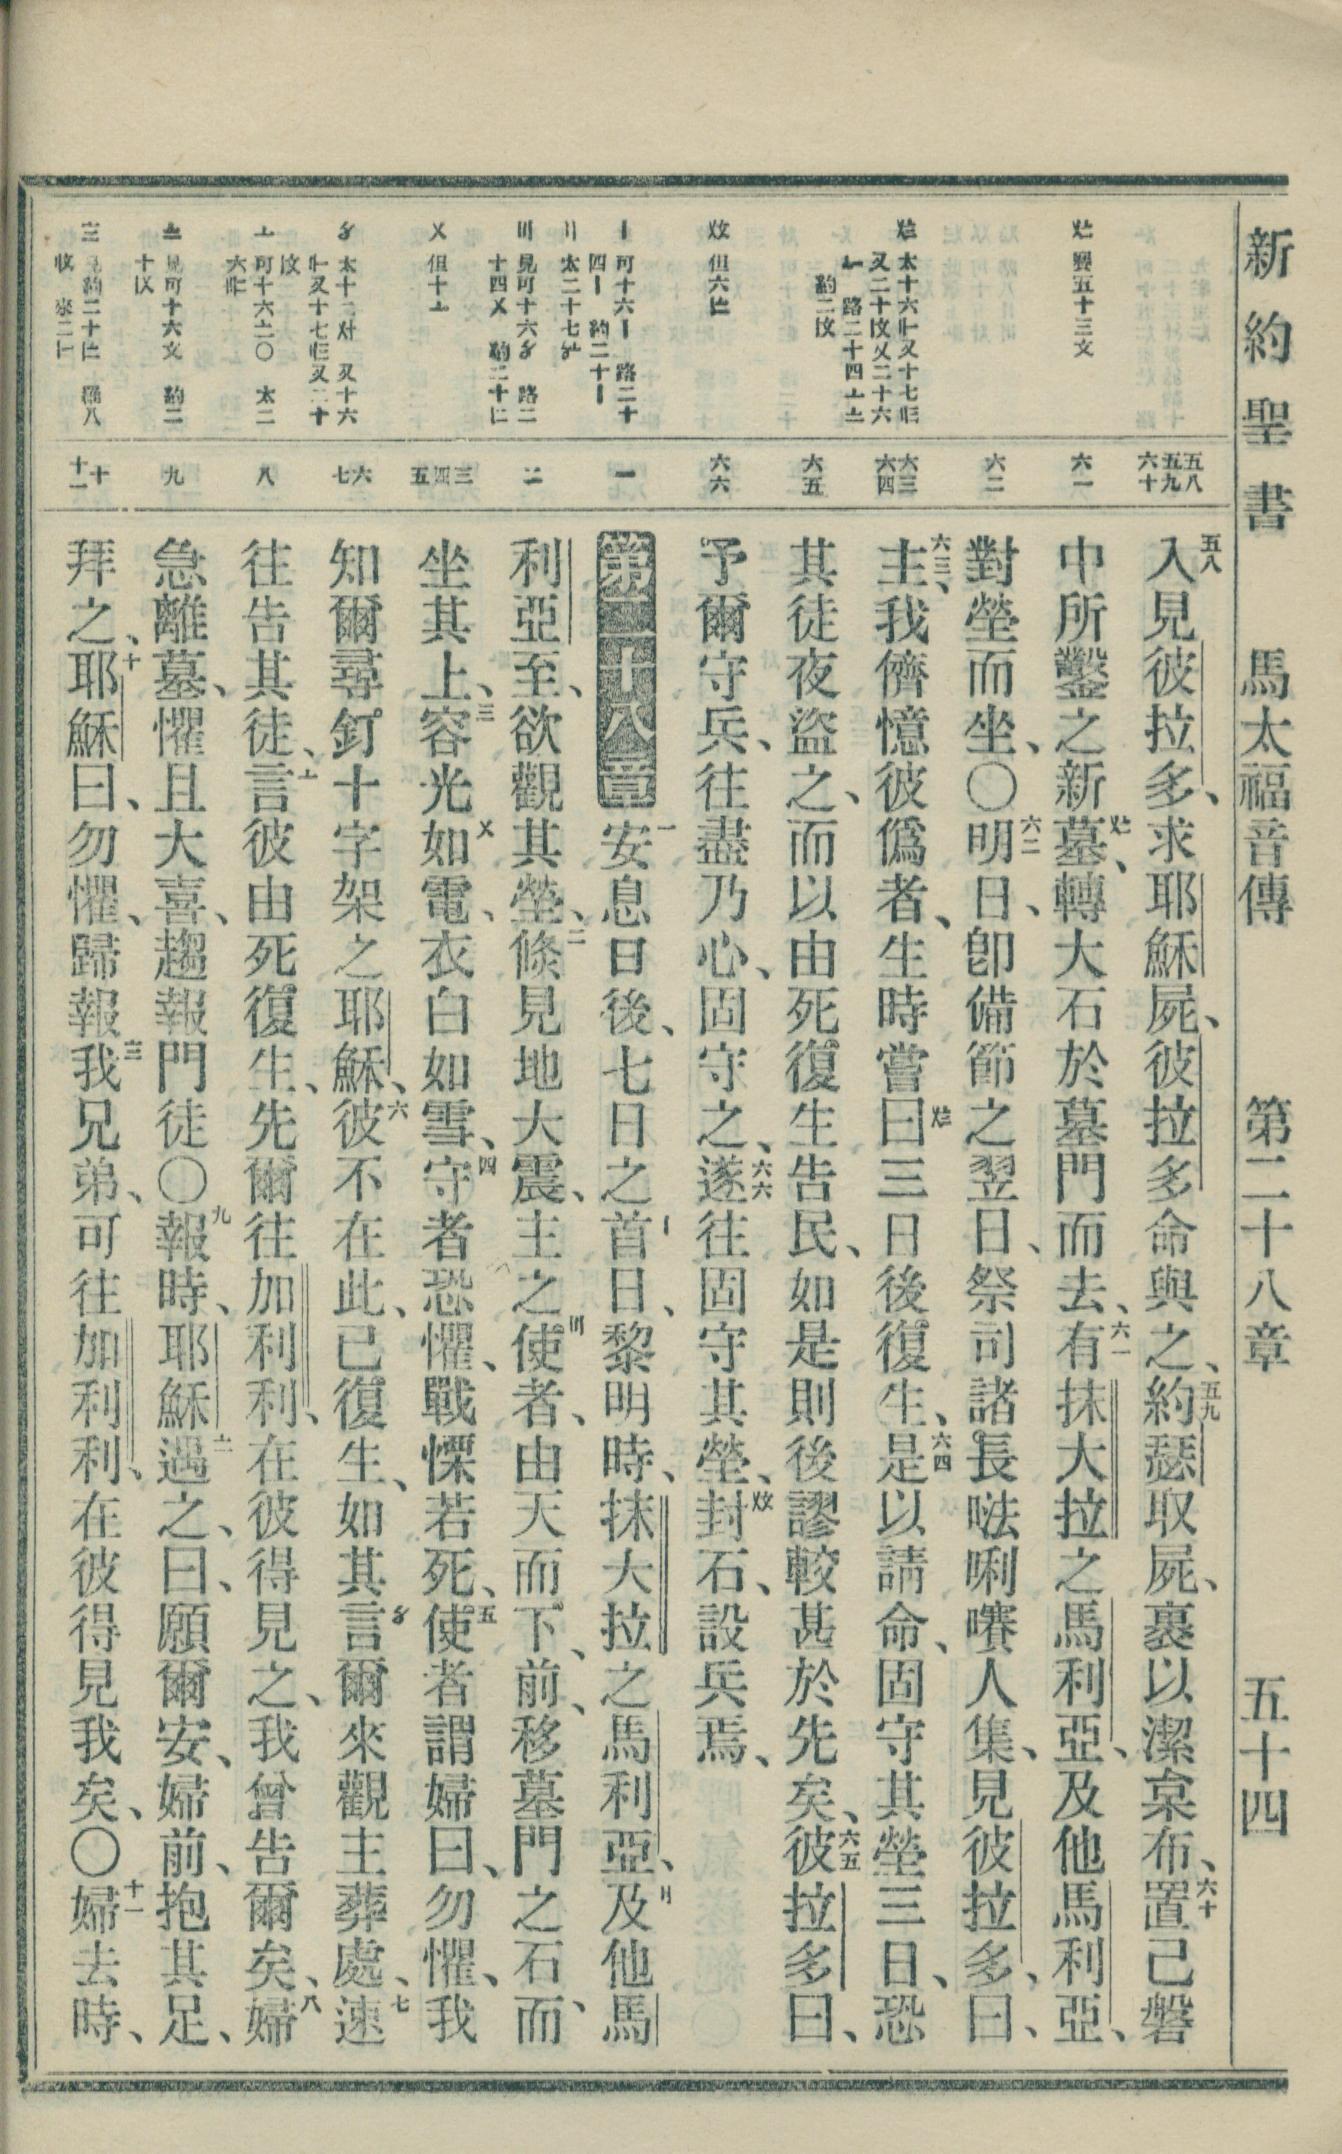 新約聖書　馬太福音傳　第二十八章　五十四
五八 五九 六十
六一
六二
六三 六四
六五
六六
一
二
三 四 五
六 七
八
九
十 十一
入見彼拉多、求耶穌屍、彼拉多命與之、約瑟取屍、裹以潔枲布、置己磐
中所鑿之新墓、轉大石於墓門而去、有抹大拉之馬利亞、及他馬利亞、
對塋而坐、〇明日、卽備節之翌日、祭司諸長𠵽唎㘔人集、見彼拉多、曰、
主、我儕憶彼僞者、生時嘗曰三日後復生、是以請命、固守其塋三日、恐
其徒夜盜之、而以由死復生告民、如是則後謬較甚於先矣、彼拉多曰、
予爾守兵、往盡乃心、固守之、遂往固守其塋、封石、設兵焉、
第二十八章 安息日後、七日之首日、黎明時、抹大拉之馬利亞、及他馬
利亞至、欲觀其塋、倐見地大震、主之使者、由天而下、前、移墓門之石、而
坐其上、容光如電、衣白如雪、守者恐懼、戰慄若死、使者謂婦曰、勿懼、我
知爾尋釘十字架之耶穌、彼不在此、已復生、如其言爾來觀主葬處、速
往告其徒、言彼由死復生、先爾往加利利、在彼得見之、我曾告爾矣、婦
急離墓、懼且大喜、趨報門徒〇報時、耶穌遇之、曰、願爾安、婦前、抱其足、
拜之、耶穌曰、勿懼、歸報我兄弟、可往加利利、在彼得見我矣、〇婦去時、